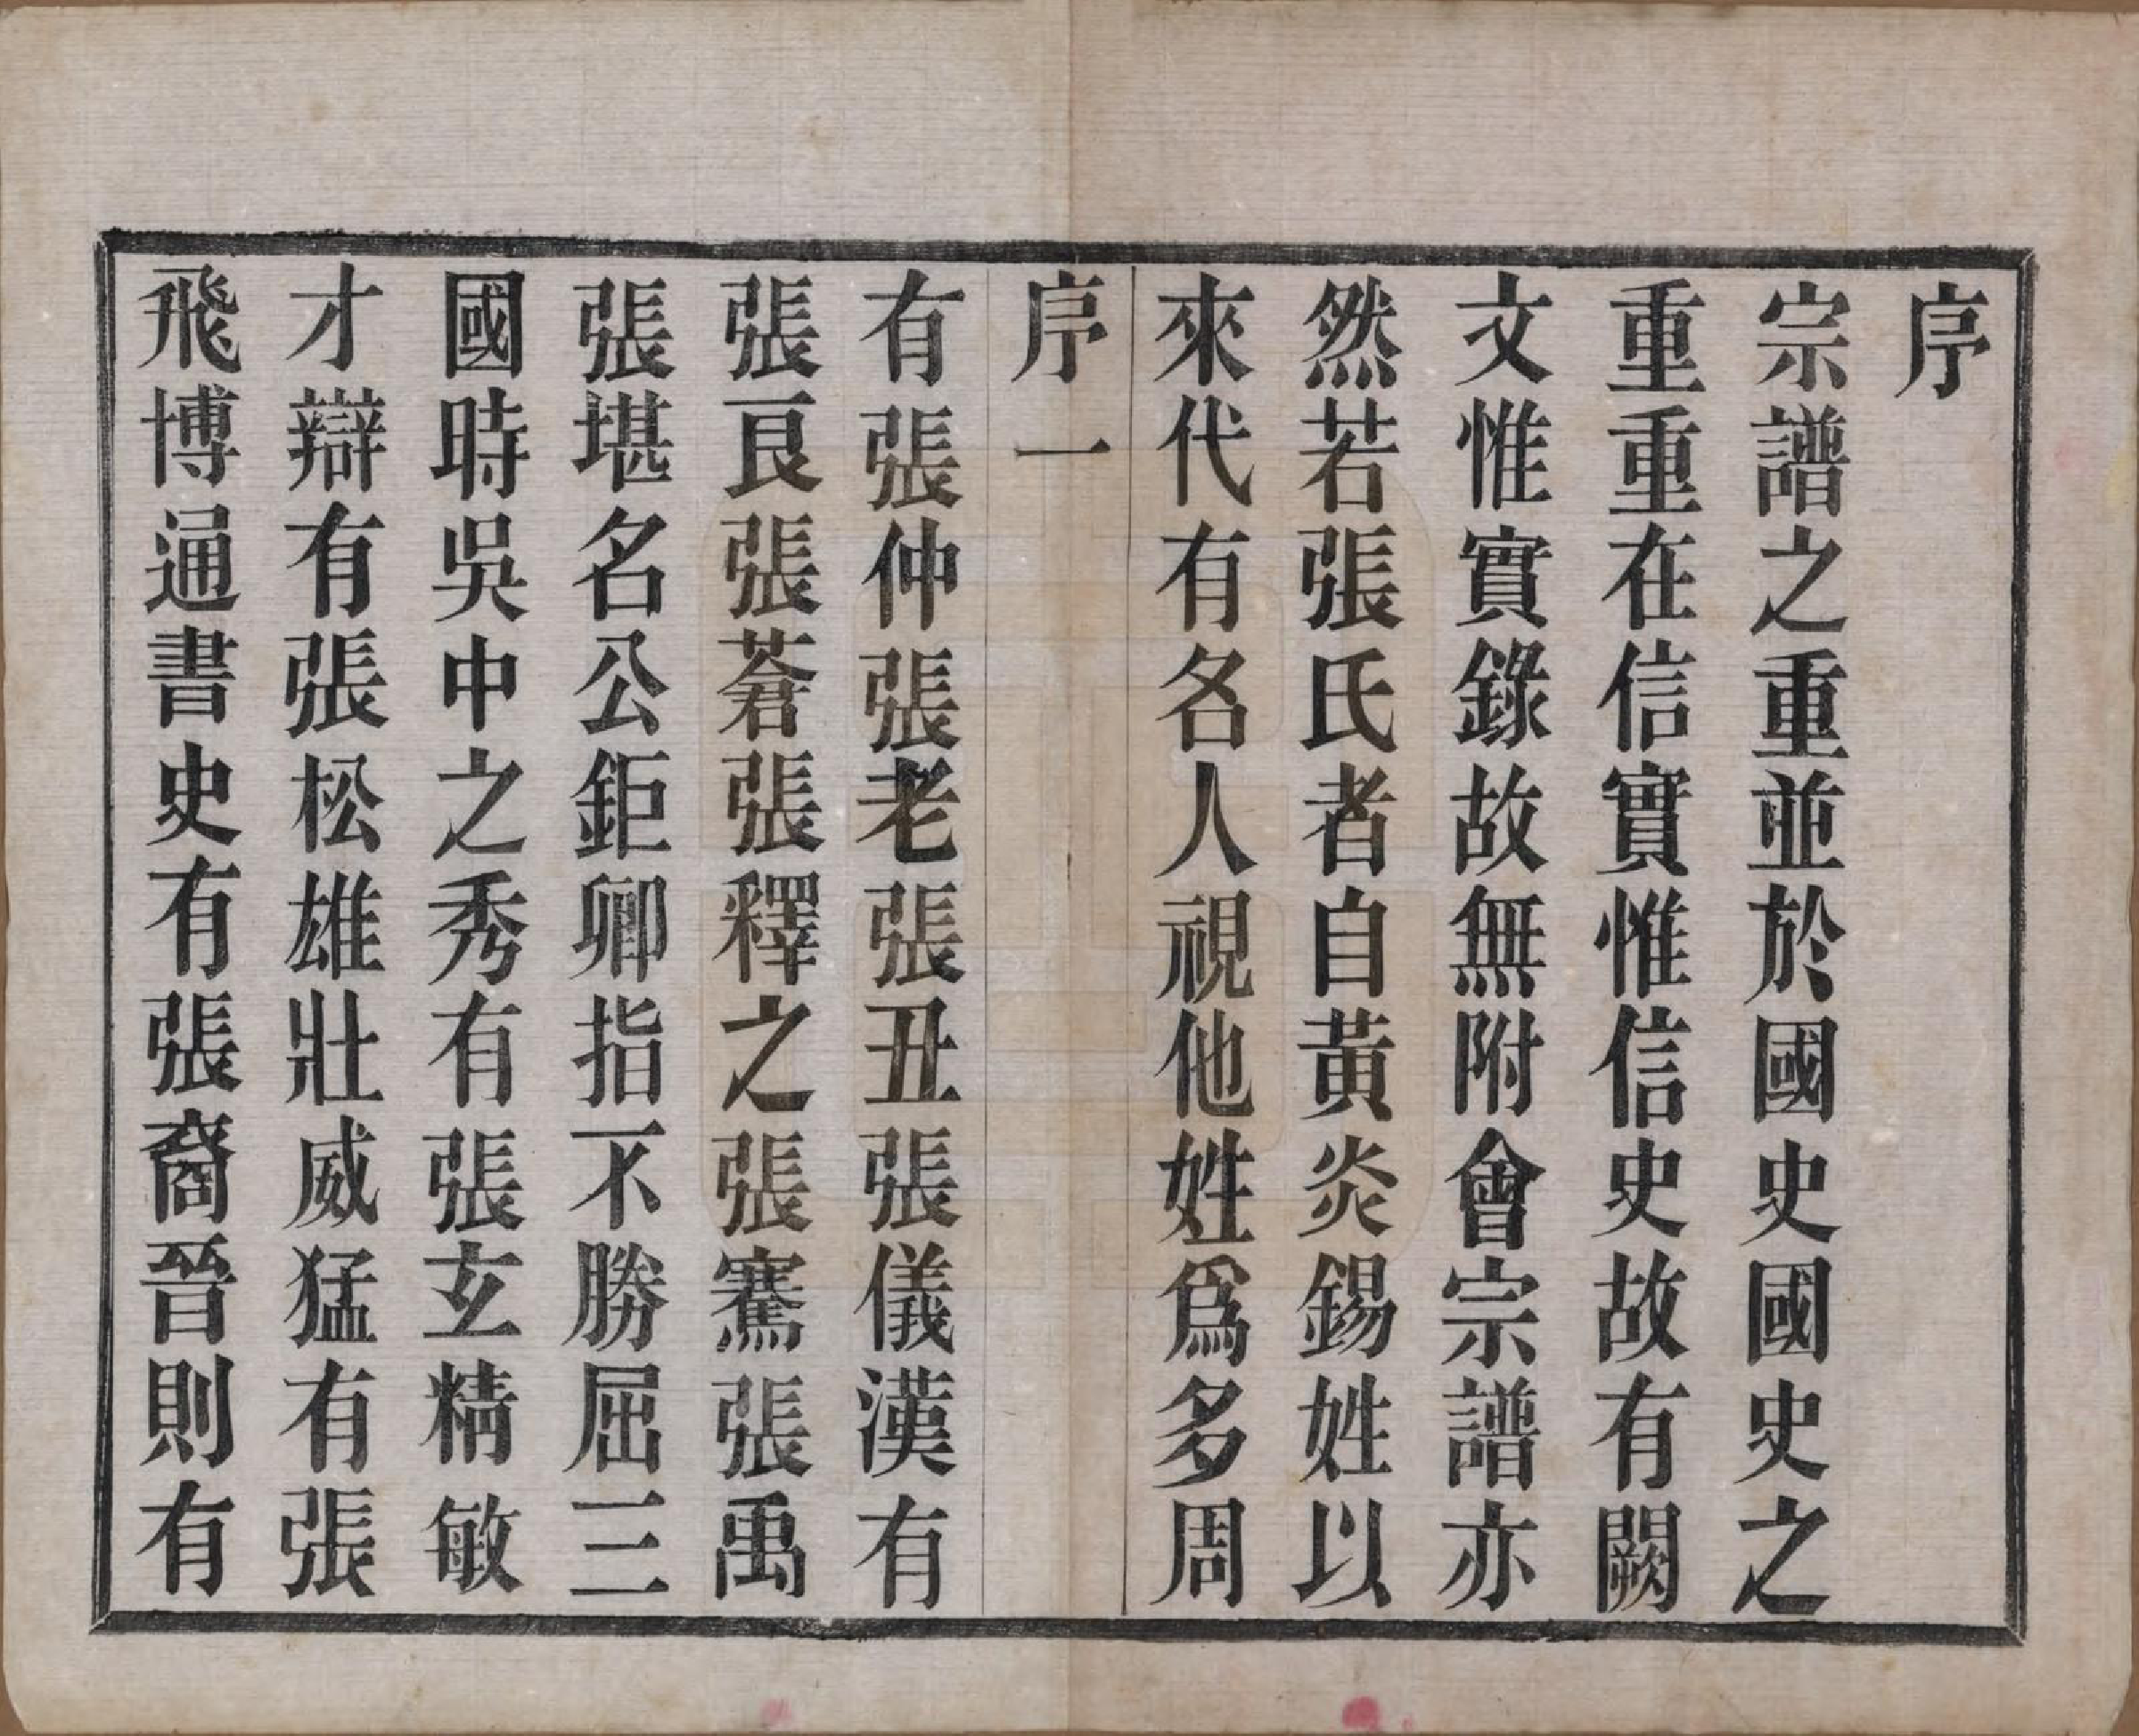 序
宗譜之重並於國史國史之
重重在信實惟信史故有闕
文惟實錄故無附會宗譜亦
然若張氏者自黃炎錫姓以
來代有名人視他姓爲多周
序 一
有張仲張老張丑張儀漢有
張良張蒼張釋之張騫張禹
張堪名公鉅卿指不勝屈三
國時吳中之秀有張玄精敏
才辯有張松雄壯威猛有張
飛博通書史有張裔晉則有